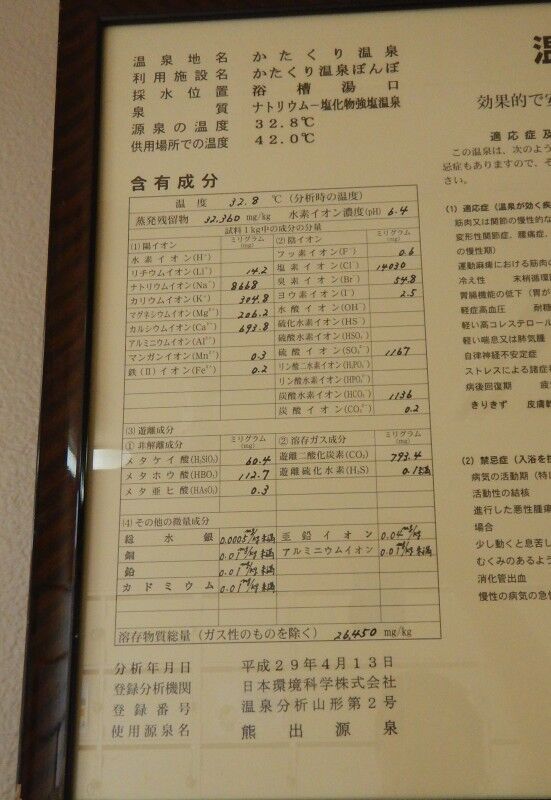 温泉地名 かたくり温泉
利用施設名 かたくり温泉ぼんぼ
採水位置 浴槽湯口
泉質 ナトリウム－塩化物強塩温泉
源泉の温度 32.8℃
供用場所での温度 42.0℃
含有成分
温度 32.8 ℃（分析時の温度）
蒸発残留物 32,360 mg/kg 水素イオン濃度(pH) 6.4
試料1kg中の成分の分量
(1)陽イオン ミリグラム(mg) (2)陰イオン ミリグラム(mg)
水素イオン(H⁺) フッ素イオン(F⁻) 0.6
リチウムイオン(Li⁺) 14.2 塩素イオン(Cl⁻) 14030
ナトリウムイオン(Na⁺) 8668 臭素イオン(Br⁻) 54.8
カリウムイオン(K⁺) 304.8 ヨウ素イオン(I⁻) 2.5
マグネシウムイオン(Mg²⁺) 206.2 水酸イオン(OH⁻)
カルシウムイオン(Ca²⁺) 693.8 硫化水素イオン(HS⁻)
アルミニウムイオン(Al³⁺) 硫酸水素イオン(HSO₄⁻)
マンガンイオン(Mn²⁺) 0.3 硫酸イオン(SO₄²⁻) 1167
鉄(Ⅱ)イオン(Fe²⁺) 0.2 リン酸二水素イオン(H₂PO₄⁻)
リン酸水素イオン(HPO₄²⁻)
炭酸水素イオン(HCO₃⁻) 1136
炭酸イオン(CO₃²⁻) 0.2
(3)遊離成分
①非解離成分 ミリグラム(mg) ②溶存ガス成分 ミリグラム(mg)
メタケイ酸(H₂SiO₃) 60.4 遊離二酸化炭素(CO₂) 793.4
メタホウ酸(HBO₂) 112.7 遊離硫化水素(H₂S) 0.1未満
メタ亜ヒ酸(HAsO₂) 0.3
(4)その他の微量成分
総水銀 0.0005mg/kg未満 亜鉛イオン 0.04mg/kg
銅 0.01mg/kg未満 アルミニウムイオン 0.01mg/kg未満
鉛 0.01mg/kg未満
カドミウム 0.01mg/kg未満
溶存物質総量（ガス性のものを除く） 26,450 mg/kg
分析年月日 平成29年4月13日
登録分析機関 日本環境科学株式会社
登録番号 温泉分析山形第2号
使用源泉名 熊出源泉
温
効果的で
適応症及
この温泉は、次のよう
忌症もありますので、そ
さい。
(1) 適応症（温泉が効く疾
筋肉又は関節の慢性的な
変形性関節症、腰痛症、
の慢性期）
運動麻痺における筋肉の
冷え性 末梢循環
胃腸機能の低下（胃が
軽症高血圧 耐糖
軽い高コレステロール
軽い喘息又は肺気腫
自律神経不安定症
ストレスによる諸症
病後回復期
きりきず 皮膚
(2) 禁忌症（入浴を
病気の活動期（特に
活動性の結核
進行した悪性腫瘍
場合
少し動くと息苦し
むくみのあるよう
消化管出血
慢性の病気の急